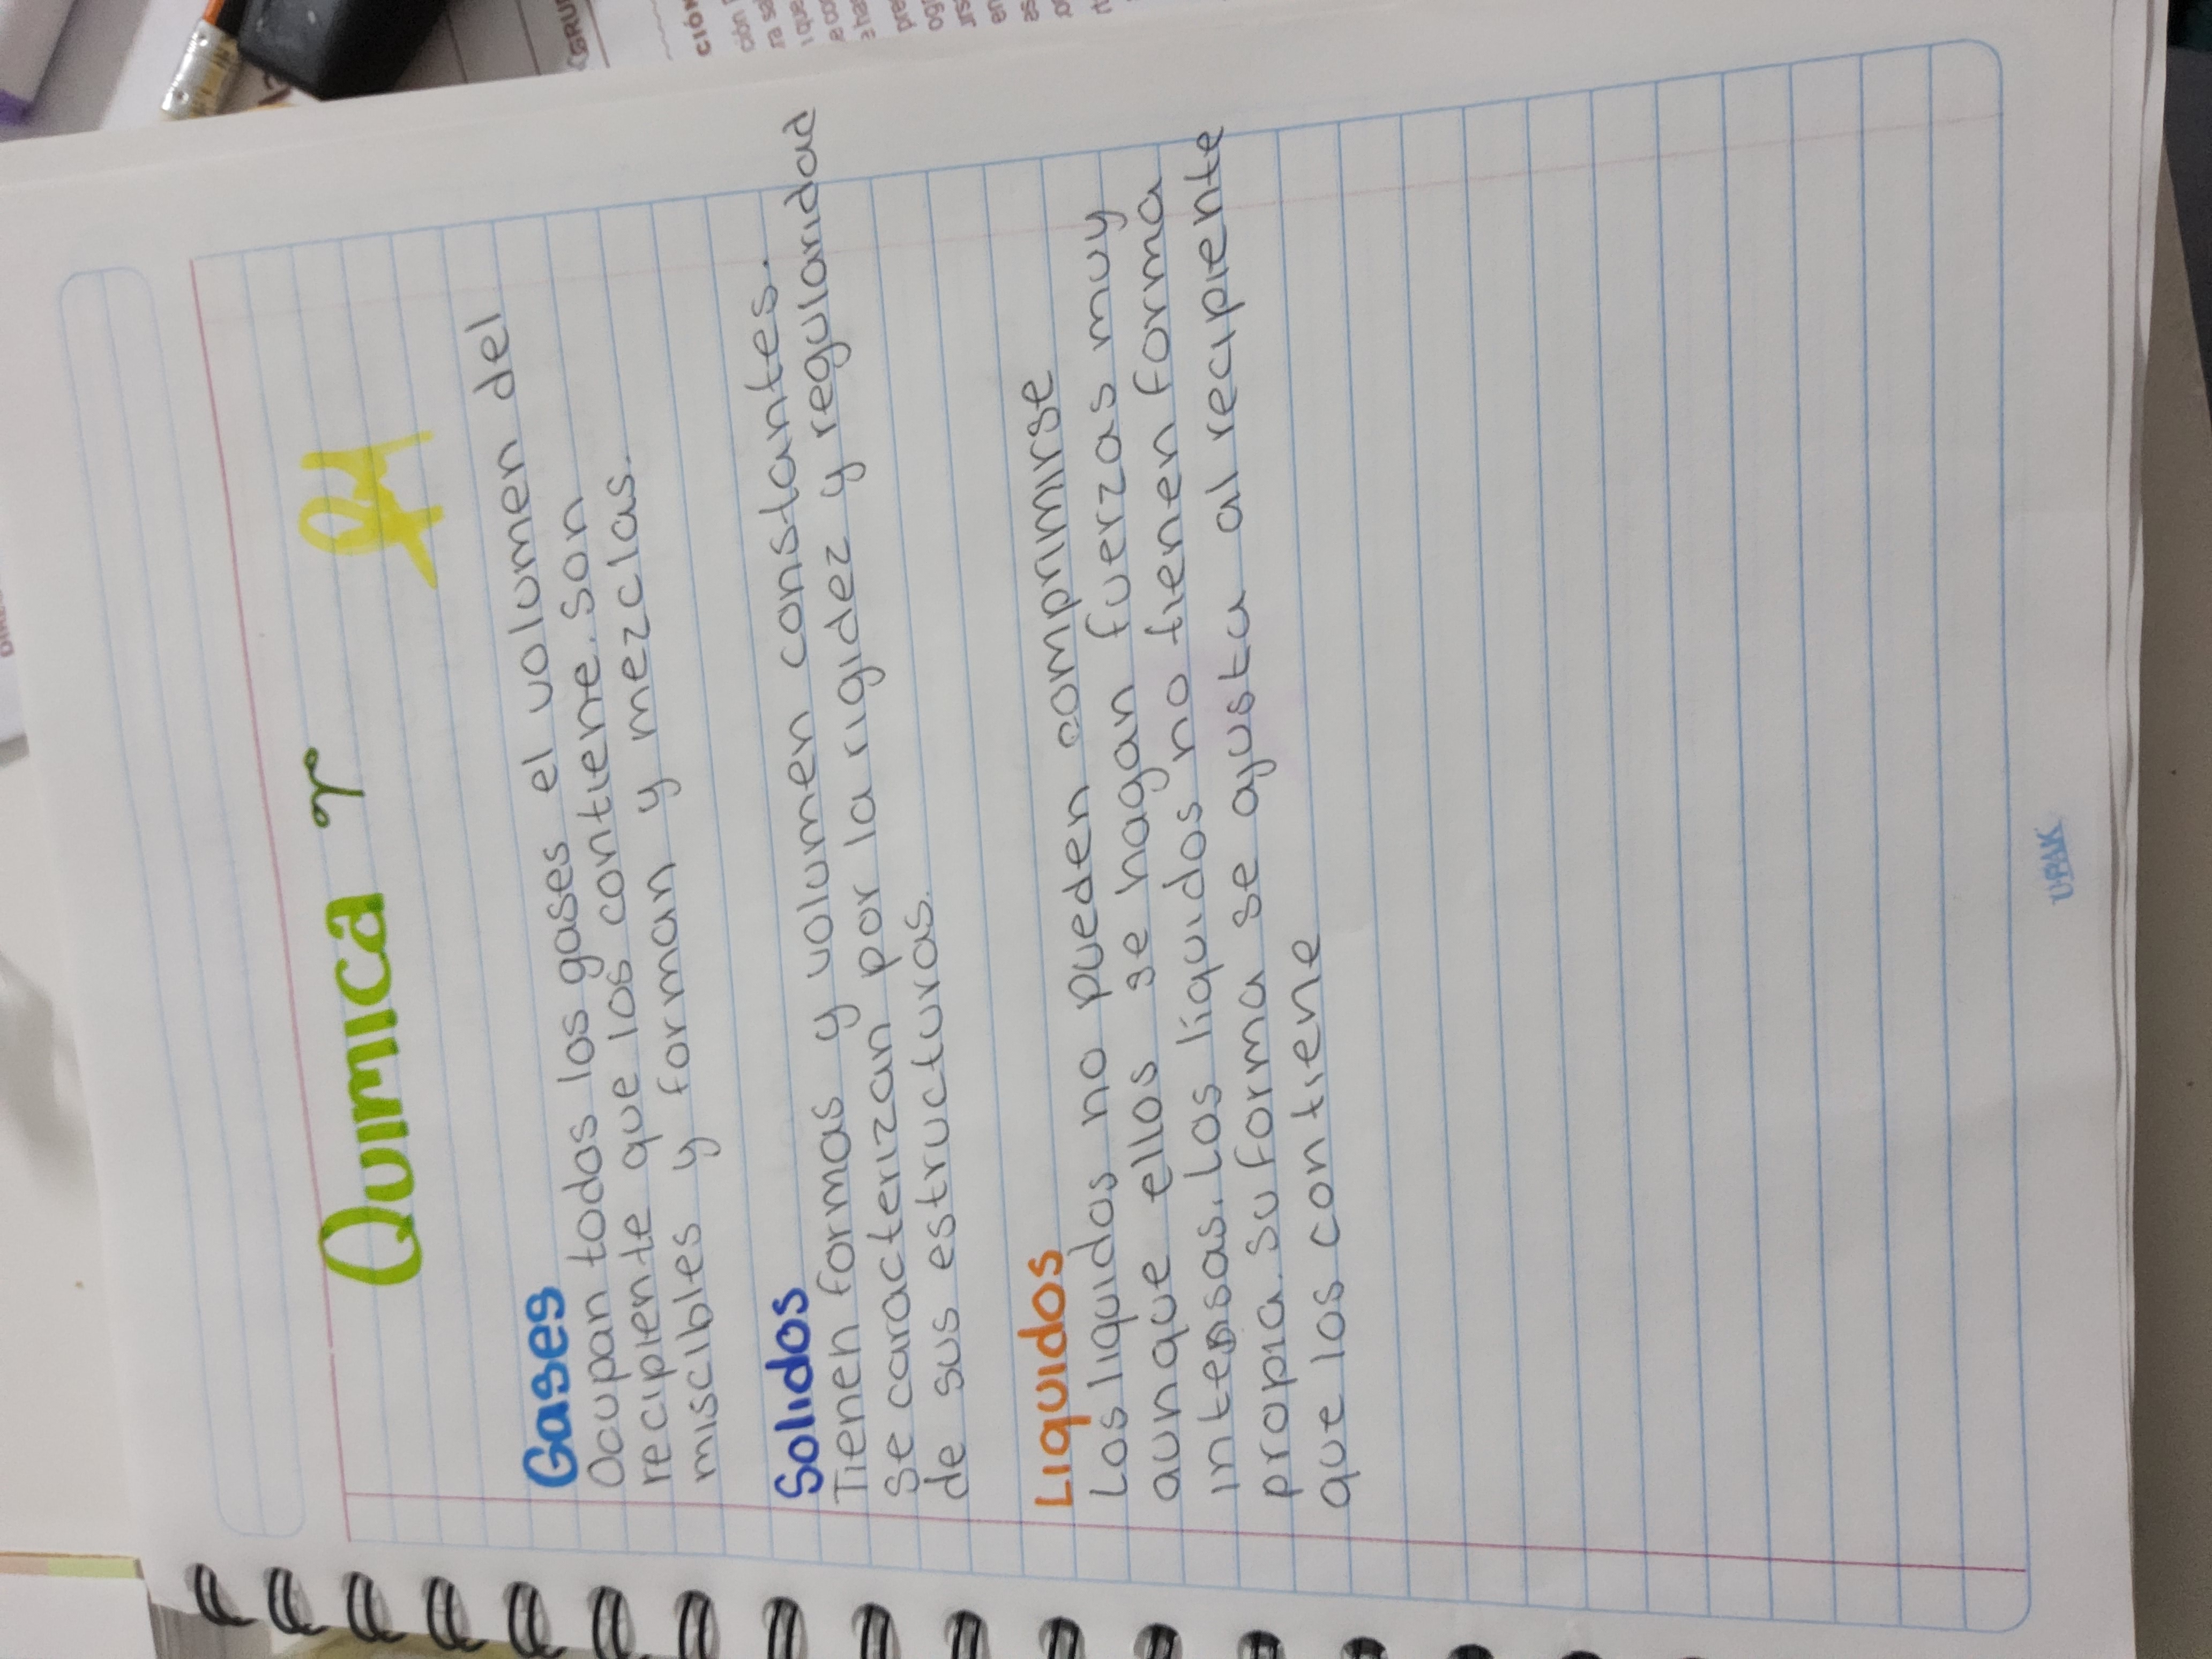 Quimica
Gases
Ocupan todos los gases el volumen del
recipiente que los contiene. Son
miscibles y forman y mezclas.
Solidos
Tienen formas y volumen constantes.
Se caracterizan por la rigidez y regularidad
de sus estructuras.
Liquidos
Los liquidos no pueden comprimirse
aunque ellos se hagan fuerzas muy
intensas. Los líquidos no tienen forma
propia. Su forma se ajusta al recipiente
que los contiene